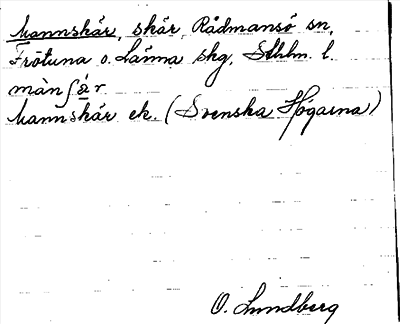 Mannskär, skär, Rådmansö sn,
Frötuna o. Länna skg, Sthlm l.
mànʃä́r
Mannskär ek. (Svenska Högarna)
O. Lundberg